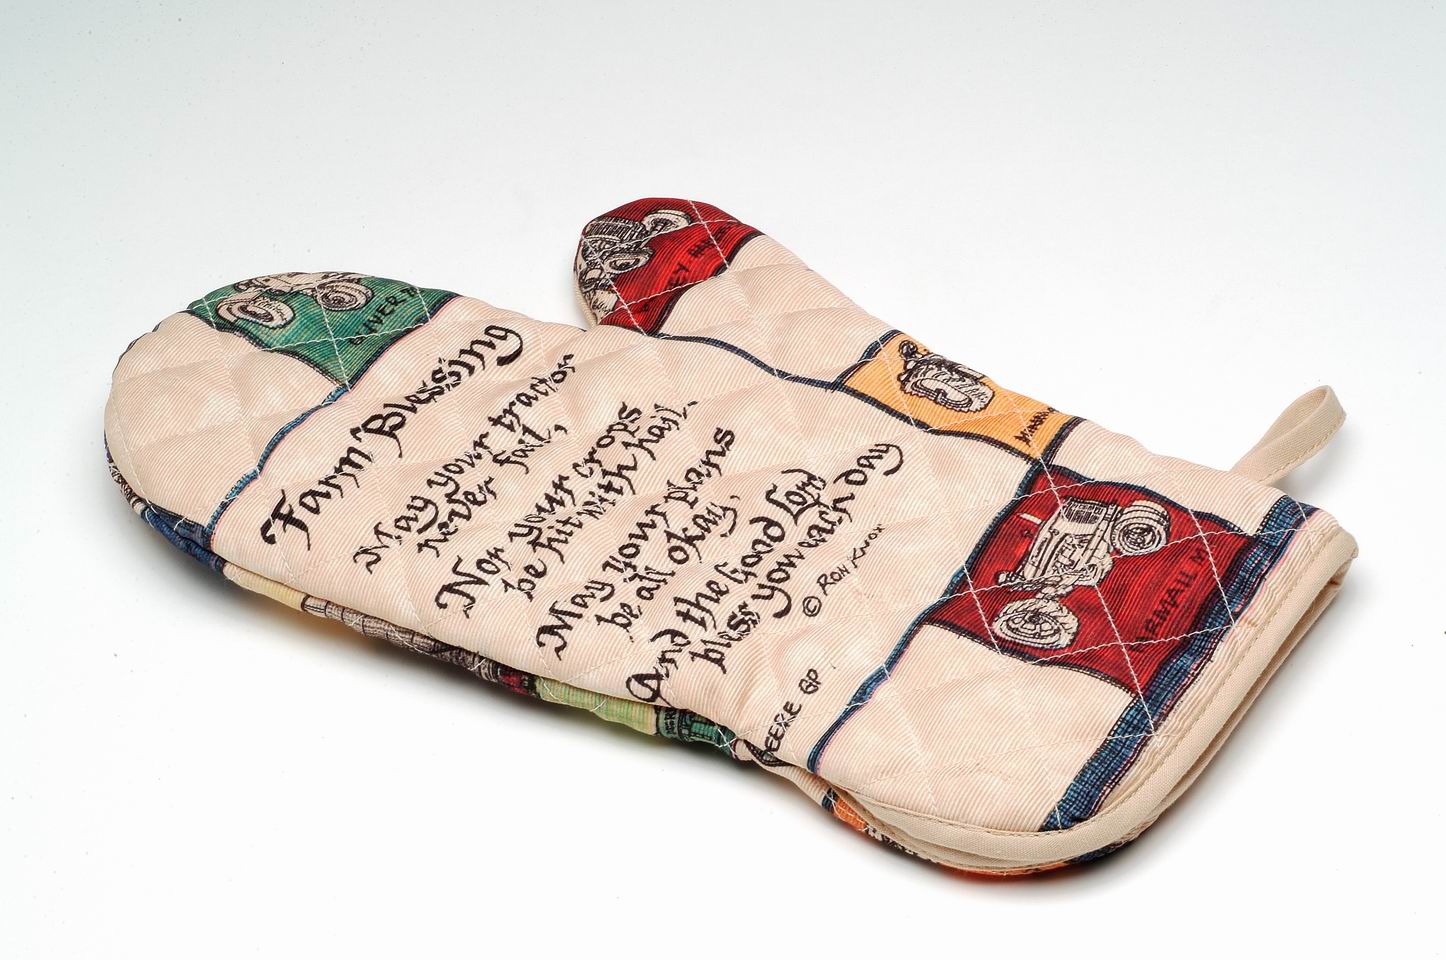 Farm Blessing
May your tractor
never fail,
Nor your crops
be hit with hail.
May your plans
be all okay,
And the Good Lord
bless you each day
© RON KNOX
DEERE GP